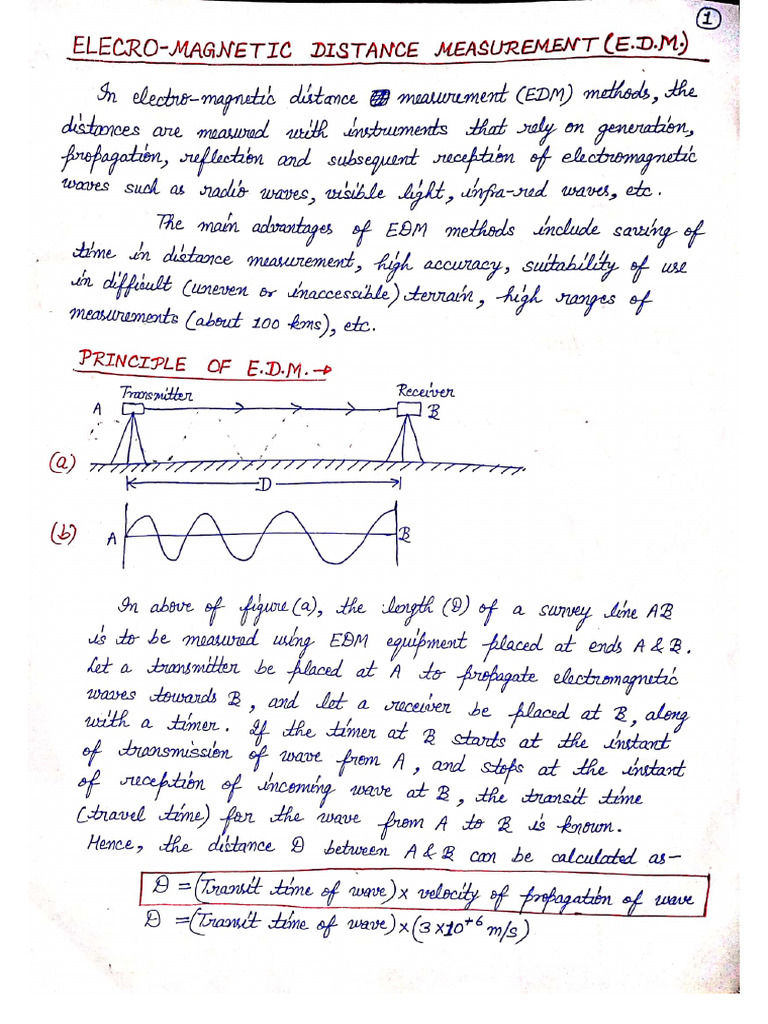 1
ELECRO-MAGNETIC DISTANCE MEASUREMENT (E.D.M.)
In electro-magnetic distance measurement (EDM) methods, the
distances are measured with instruments that rely on generation,
propagation, reflection and subsequent reception of electromagnetic
waves such as radio waves, visible light, infra-red waves, etc.
The main advantages of EDM methods include saving of
time in distance measurement, high accuracy, suitability of use
in difficult (uneven or inaccessible) terrain, high ranges of
measurements (about 100 kms), etc.
PRINCIPLE OF E.D.M.→
Transmitter Receiver
A B
(a)
D
(b) A B
In above of figure (a), the length (D) of a survey line AB
is to be measured using EDM equipment placed at ends A & B.
Let a transmitter be placed at A to propagate electromagnetic
waves towards B, and let a receiver be placed at B, along
with a timer. If the timer at B starts at the instant
of transmission of wave from A, and stops at the instant
of reception of incoming wave at B, the transit time
(travel time) for the wave from A to B is known.
Hence, the distance D between A & B can be calculated as-
D = (Transit time of wave) x velocity of propagation of wave
D = (Transit time of wave) x (3 x 10⁺⁶ m/s)